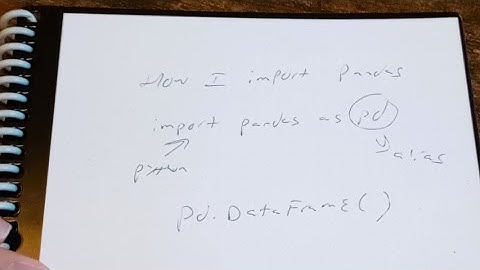 How I import pandas
import pandas as pd
alias
python
pd.DataFrame()